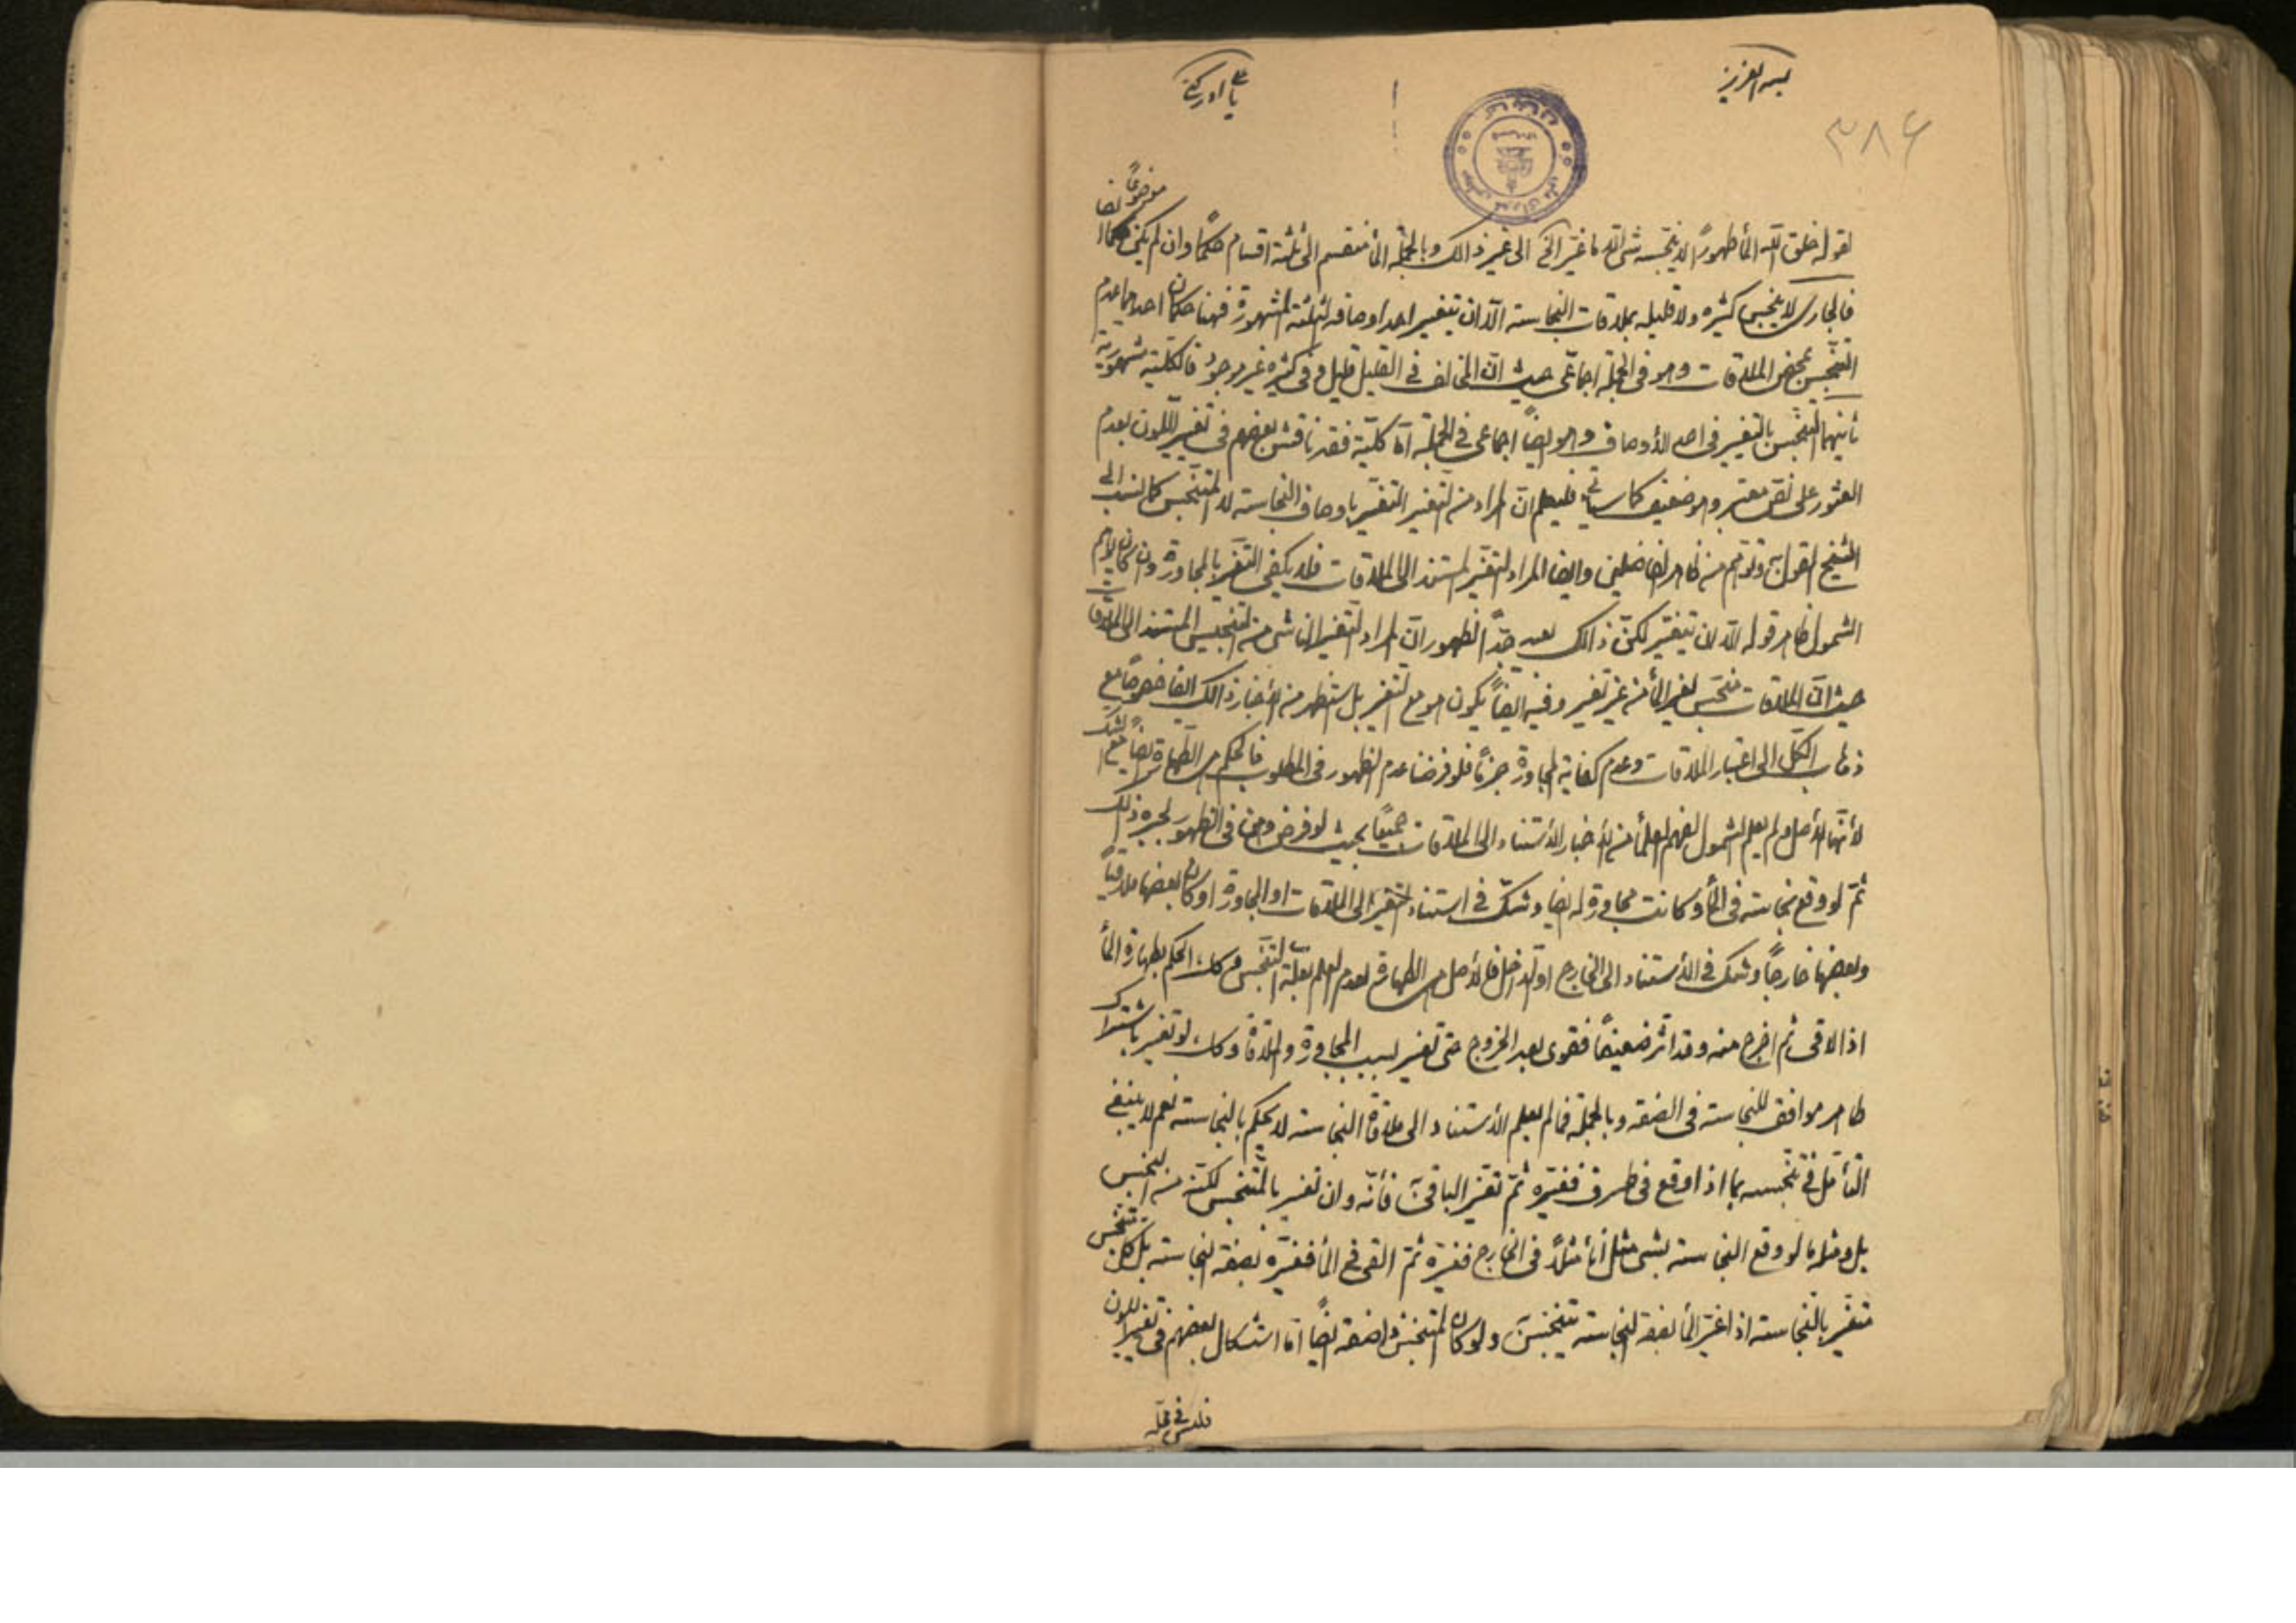 بسمه العزیز
یا علی ادرکنی
۳۸۶
موضوعًا ایضا
لقوله خلق الله المأ طهورًا لا ینجسه شئ الا ما غیر الخ الی غیر ذالک وبالجملة المأ منقسم الی ثلثة اقسام حکمًا وان لم یکن
فالجاری لا ینجس کثیره ولا قلیله بملاقات النجاسته الّا ان یتغیر احد اوصافه الثلثة المشهورة فهنا حکمان احدهما عدم
التنجس بمحض الملاقات وهو فی الجملة اجماعی حیث انّ المخالف فی القلیل قلیل وفی کثیره غیر موجود فالکلیته مشهوریة
ثانیهما التنجس بالتغیر فی احد الأوصاف وهو ایضًا اجماعی فی الجملة امّا کلیّة فقد ناقش بعضهم فی تغیر اللون لعدم
العثور علی نص معتبر وهو ضعیف کما سیأتی فلیعلم انّ المراد من التغیر التغیر باوصاف النجاسته لا المتنجس کما نسب الی
الشیخ القول به وتوهم من ظاهر الفاضلین وایضا المراد التغیر المستند الی الملاقات فلا یکفی التغیر بالمجاورة وان کان یوهم
الشمول ظاهر قوله الّا ان یتغیر لکنّ ذالک بعید جدًّا لظهور انّ المراد التغیر الناشی من التنجیس المستند الی الملاقات
حیث انّ الملاقات منجس لغیر المأ من غیر تغیر وفیه ایضًا یکون هو مع التغیر بل استظهر من الأخبار ذالک ایضا خصوصًا مع
ذهاب الکلّ الی اعتبار الملاقات وعدم کفایة المجاورة جزمًا فلو فرضنا عدم الظهور فی المطلوب فالحکم هی الطهارة ایضًا مع الشک
لأنّها الأصل ولم یعلم الشمول لفهم العلمأ من الأخبار الأستناد الی الملاقات جمیعًا بحیث لو فرض وهن فی الظهور لجبره ذالک
ثمّ لو وقع نجاسته فی المأ وکانت مجاورة له ایضا وشکّ فی استناد التغیر الی الملاقات او المجاورة او کان بعضها ملاقیًا
وبعضها خارجًا وشکّ فی الأستناد الی الخارج او الداخل فالأصل هی الطهارة لعدم العلم بعلّة التنجس وکذا الحکم بطهارة المأ
اذا لاقی ثم اخرج منه وقد اثر ضعیفًا فقوی بعد الخروج حتی تغیر بسبب المجاورة والملاقاة وکذا لو تغیر باشتراک
طاهر موافق للنجاسته فی الصفة وبالجملة فما لم یعلم الأستناد الی ملاقاة النجاسته لا یحکم بالنجاسته نعم لا ینبغی
التأمّل فی تنجسه بما اذا وقع فی طرف فغیّره ثمّ تغیّر الباقی فأنّه وان تغیر بالمتنجس لکنّه من النجس
بل ومثله ما لو وقع النجاسته بشئ مثل المأ مثلًا فی الخارج فغیّره ثمّ القی فی المأ فغیّره بصفة النجاسته بل کلّ متنجس
متغیّر بالنجاسته اذا غیّر المأ بصفة النجاسته یتنجس ولو کان المتنجس واصفة ایضًا امّا اشکال بعضهم فی تغیر اللون
فلیس فی محلّه